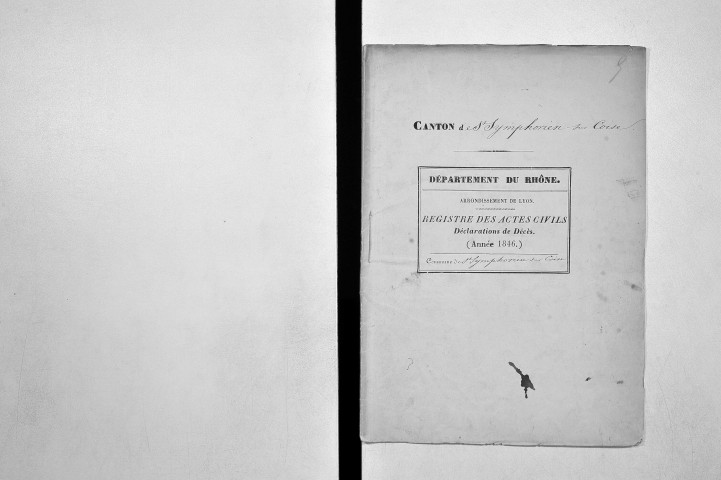 CANTON de St Symphorien sur Coise
DÉPARTEMENT DU RHÔNE.
ARRONDISSEMENT DE LYON.
REGISTRE DES ACTES CIVILS
Déclarations de Décès.
(Année 1846.)
Commune de St Symphorien sur Coise